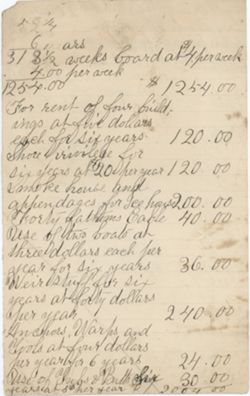 6 years
313 1/2 weeks board at $4 per week
4.00 per week
1254.00 $1254.00
For rent of four build-
ings at five dollars
each for six years. 120.00
Shore Privilege for
six years at $20 per year 120.00
Smoke house and
appendages for 200.00
Forty fathoms Cable 40.00
Use of two boats at
three dollars each per
year for six years 36.00
Weir stuff for six
years at forty dollars
per year 240.00
Anchors, Warps, and
Tools at four dollars
per year for 6 years 24.00
Use of Tubs & six 30.00
years at 5$ per year